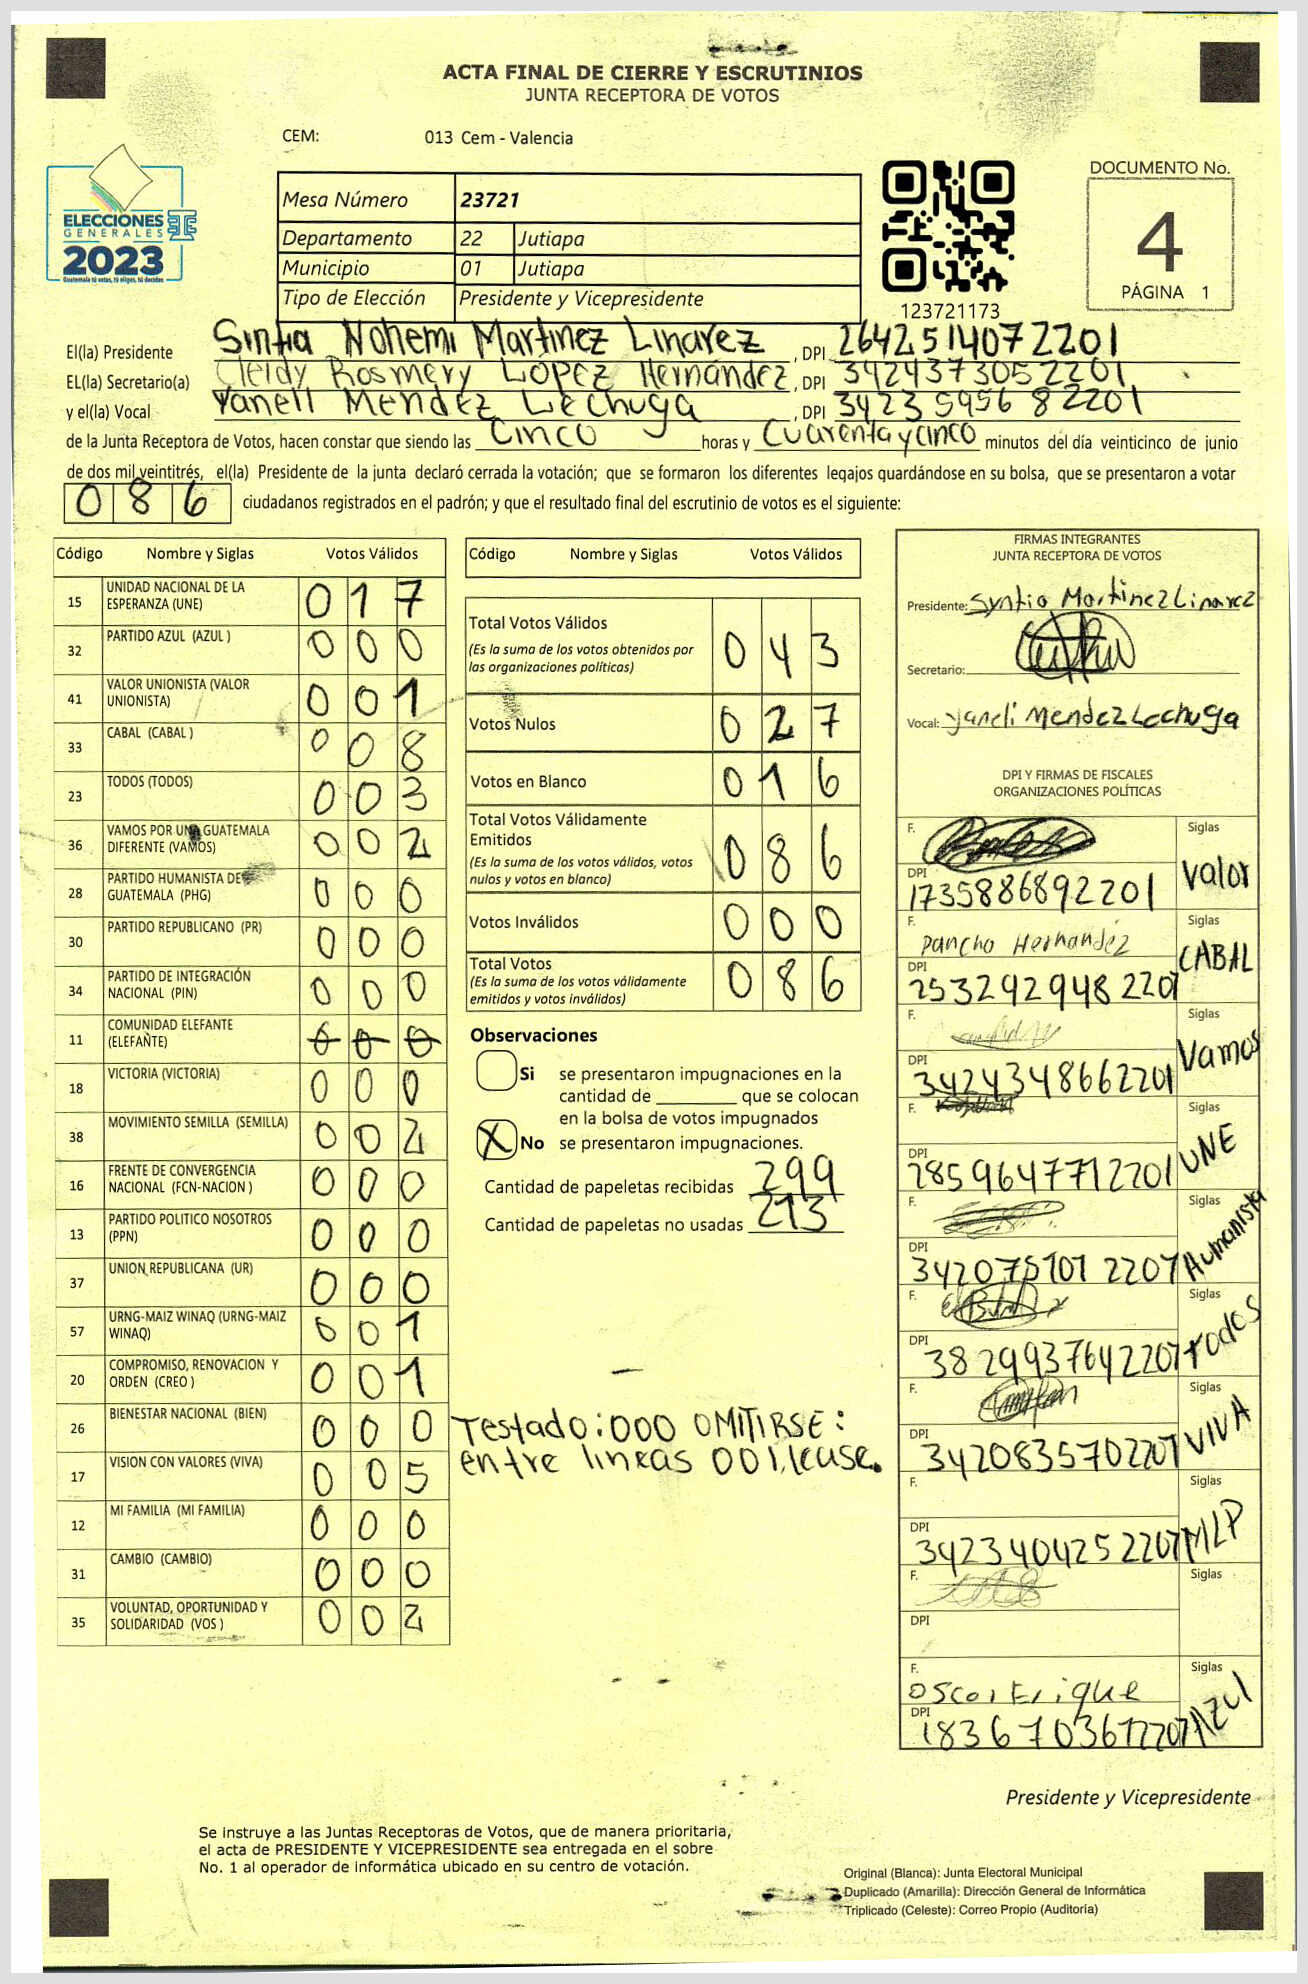 ACTA FINAL DE CIERRE Y ESCRUTINIOS
JUNTA RECEPTORA DE VOTOS
CEM: 013 Cem - Valencia
ELECCIONES
GENERALES
2023
Guatemala tú votas, tú eliges, tú decides
Mesa Número 23721
Departamento 22 Jutiapa
Municipio 01 Jutiapa
Tipo de Elección Presidente y Vicepresidente
123721173
DOCUMENTO No.
4
PÁGINA 1
El(la) Presidente Sintia Nohemi Martinez Linarez, DPI 2642514072201
EL(la) Secretario(a) Cleidy Rosmery López Hernández, DPI 3424373052201
y el(la) Vocal Yaneli Mendez Lechuga, DPI 3423595682201
de la Junta Receptora de Votos, hacen constar que siendo las Cinco horas y Cuarenta y cinco minutos del día veinticinco de junio
de dos mil veintitrés, el(la) Presidente de la junta declaró cerrada la votación; que se formaron los diferentes legajos guardándose en su bolsa, que se presentaron a votar
086 ciudadanos registrados en el padrón; y que el resultado final del escrutinio de votos es el siguiente:
Código Nombre y Siglas Votos Válidos
15 UNIDAD NACIONAL DE LA ESPERANZA (UNE) 017
32 PARTIDO AZUL (AZUL ) 000
41 VALOR UNIONISTA (VALOR UNIONISTA) 001
33 CABAL (CABAL ) 008
23 TODOS (TODOS) 003
36 VAMOS POR UNA GUATEMALA DIFERENTE (VAMOS) 002
28 PARTIDO HUMANISTA DE GUATEMALA (PHG) 000
30 PARTIDO REPUBLICANO (PR) 000
34 PARTIDO DE INTEGRACIÓN NACIONAL (PIN) 000
11 COMUNIDAD ELEFANTE (ELEFANTE) 000
18 VICTORIA (VICTORIA) 000
38 MOVIMIENTO SEMILLA (SEMILLA) 002
16 FRENTE DE CONVERGENCIA NACIONAL (FCN-NACION ) 000
13 PARTIDO POLITICO NOSOTROS (PPN) 000
37 UNION REPUBLICANA (UR) 000
57 URNG-MAIZ WINAQ (URNG-MAIZ WINAQ) 001
20 COMPROMISO, RENOVACION Y ORDEN (CREO ) 001
26 BIENESTAR NACIONAL (BIEN) 000
17 VISION CON VALORES (VIVA) 005
12 MI FAMILIA (MI FAMILIA) 000
31 CAMBIO (CAMBIO) 000
35 VOLUNTAD, OPORTUNIDAD Y SOLIDARIDAD (VOS ) 002
Código Nombre y Siglas Votos Válidos
Total Votos Válidos 043
(Es la suma de los votos obtenidos por
las organizaciones políticas)
Votos Nulos 027
Votos en Blanco 016
Total Votos Válidamente
Emitidos 086
(Es la suma de los votos válidos, votos
nulos y votos en blanco)
Votos Inválidos 000
Total Votos 086
(Es la suma de los votos válidamente
emitidos y votos inválidos)
Observaciones
Si se presentaron impugnaciones en la
cantidad de ________ que se colocan
en la bolsa de votos impugnados
X No se presentaron impugnaciones.
Cantidad de papeletas recibidas 299
Cantidad de papeletas no usadas 213
Testado: 000 OMITIRSE:
entre lineas 001, lease.
FIRMAS INTEGRANTES
JUNTA RECEPTORA DE VOTOS
Presidente: Syntia Martinez Linarez
Secretario:
Vocal: Yaneli Mendez Lechuga
DPI Y FIRMAS DE FISCALES
ORGANIZACIONES POLÍTICAS
F. Siglas
DPI 1735886892201 Valor
F. Pancho Hernandez Siglas
DPI 2532929482201 CABAL
F. Siglas
DPI 3424348662201 Vamos
F. Siglas
DPI 2859647712201 UNE
F. Siglas
DPI 3420751012207 Humanista
F. Siglas
DPI 3829937642207 Todos
F. Siglas
DPI 3420835702207 VIVA
F. Siglas
DPI 3423404252207 MLP
F. Siglas
DPI
F. Oscar Erique Siglas
DPI AZUL
Presidente y Vicepresidente
Se instruye a las Juntas Receptoras de Votos, que de manera prioritaria,
el acta de PRESIDENTE Y VICEPRESIDENTE sea entregada en el sobre
No. 1 al operador de informática ubicado en su centro de votación.
Original (Blanca): Junta Electoral Municipal
Duplicado (Amarilla): Dirección General de Informática
Triplicado (Celeste): Correo Propio (Auditoría)